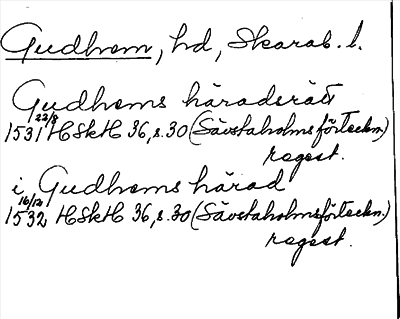 Gudhem, hd, Skarab. l.
Gudhems häradsrätt
1531 22/8 HSkH 36, s. 30 (Sävstaholmsförteckn.)
regest.
i Gudhems härad
1532 16/12 HSkH 36, s. 30 (Sävstaholmsförteckn.)
regest.